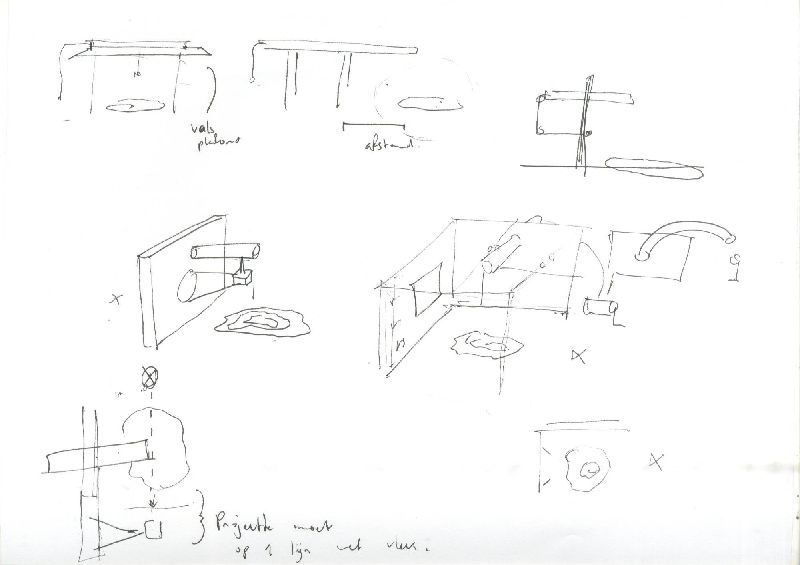 vals
plafond
afstand
Projectie moet
op 1 lijn met vlek.